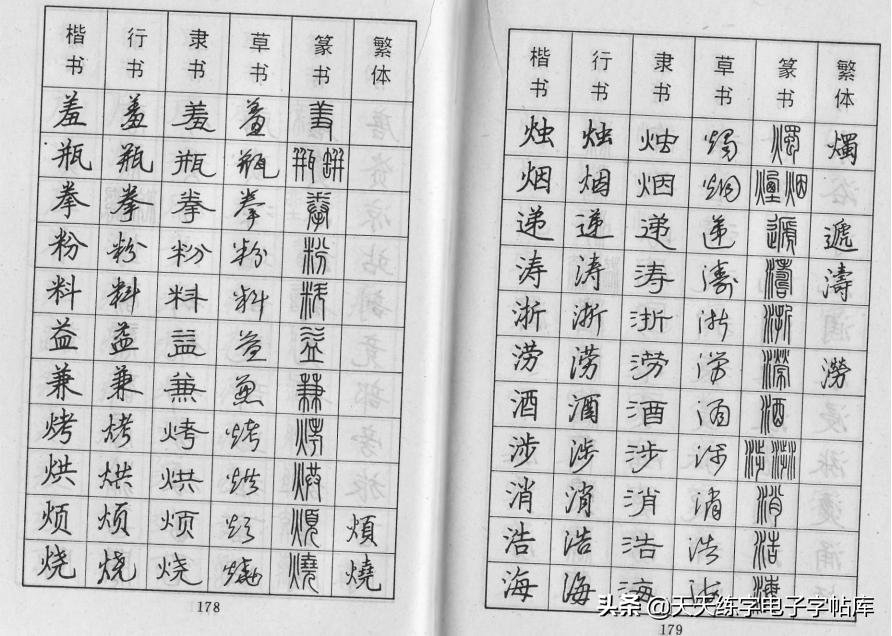 楷书 行书 隶书 草书 篆书 繁体
羞 羞 羞 羞 羞
瓶 瓶 瓶 瓶 瓶 缾
拳 拳 拳 拳 拳
粉 粉 粉 粉 粉
料 料 料 料 料
益 益 益 益 益
兼 兼 兼 兼 兼
烤 烤 烤 烤 烤
烘 烘 烘 烘 烘
烦 烦 烦 烦 煩 煩
烧 烧 烧 烧 燒 燒
178
楷书 行书 隶书 草书 篆书 繁体
烛 烛 烛 烛 燭 燭
烟 烟 烟 烟 煙 烟
递 递 递 递 遞 遞
涛 涛 涛 涛 濤 濤
浙 浙 浙 浙 浙
涝 涝 涝 涝 澇 澇
酒 酒 酒 酒 酒
涉 涉 涉 涉 涉
消 消 消 消 消
浩 浩 浩 浩 浩
海 海 海 海 海
179
头条 @天天练字电子字帖库